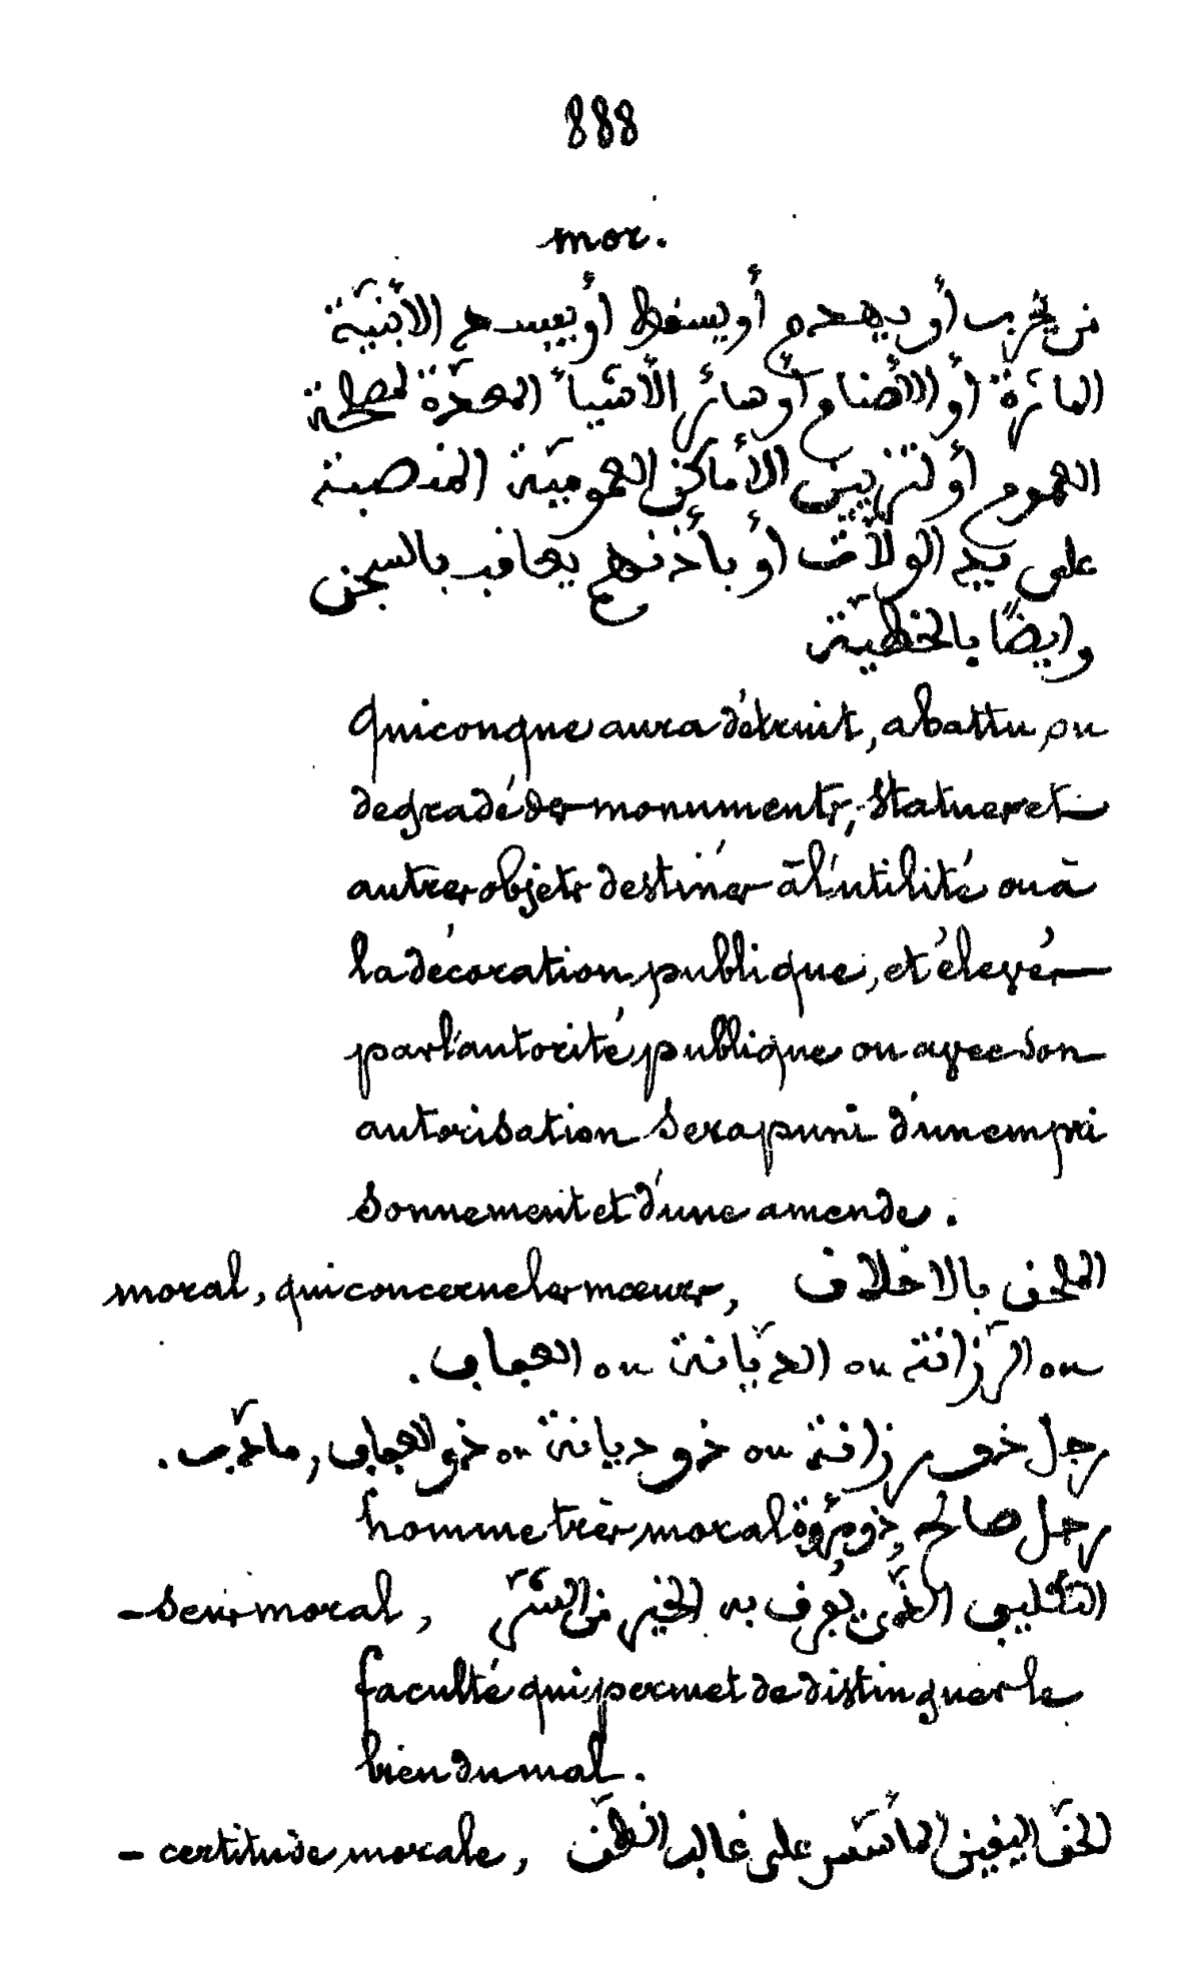 888
mor.
من يخرب أو يهدم أو يسقط أو يفسد الأبنية
المائرة أو الأصنام أو سائر الأشياء المعدّة لمصلحة
العموم أو لتزيين الأماكن العموميّة المنصبة
على يد الولّات أو بأذنهم يعاقب بالسجن
وايضًا بالخطيّة
Quiconque aura détruit, abattu, ou
degradé des monuments, statues et
autres objets destinés à l'utilité ou à
la décoration publique, et élevés
par l'autorité publique ou avec son
autorisation sera puni d'un empri
sonnement et d'une amende.
moral, qui concerne les mœurs, المتعلق بالاخلاق
ou الرّزانة ou الديّانة ou العجاب.
رجل ذو رزانة ou ذو ديانة ou ذو العجاب, مادّب.
homme très moral رجل صالح ذو مرؤة
- sens moral, الذّي يُعرف به الخير من الشّر
faculté qui permet de distinguer le
bien du mal.
- certitude morale, الحقّ اليقين المأسّس على غالب الظّن